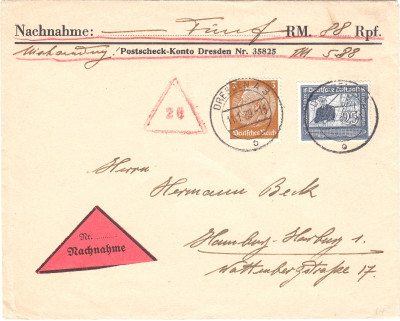 Nachnahme: — Fünf — RM. 88 Rpf.
Postscheck-Konto Dresden Nr. 35825 M. 5.88
26
DRESDEN
Deutsches Reich
Deutsche Luftpost
25
b
Herrn
Hermann Beck
Hamburg-Harburg 1.
Wattenbergstraße 17.
Nr.
Nachnahme